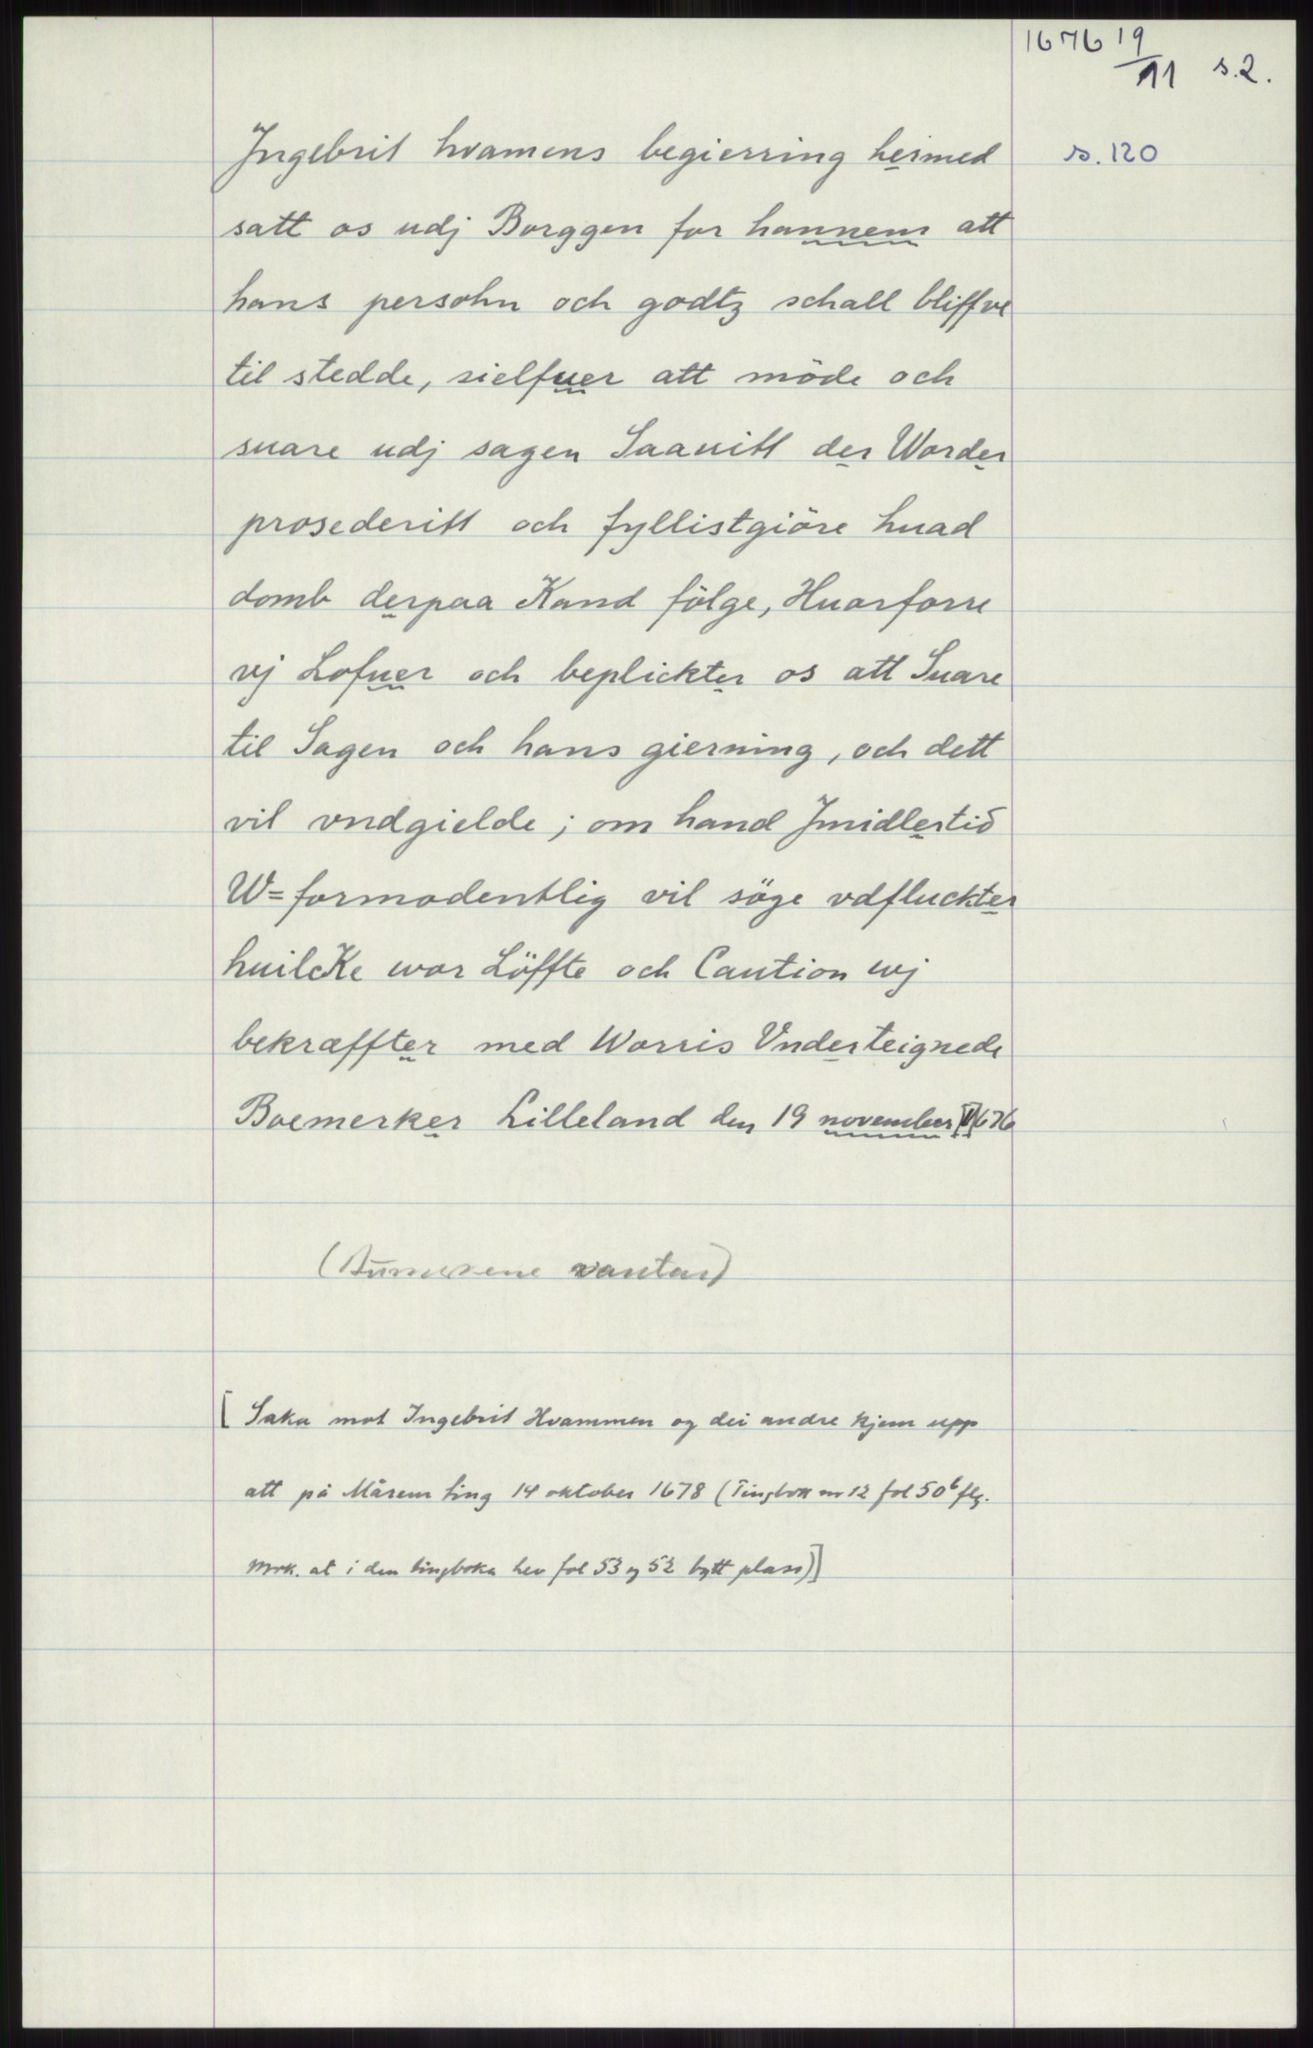 1676 19/11 s.2.
Jngebrit hvamens begierring hermed s. 120
satt os udj Borggen for hannem att
hans persohn och godtz schall bliffve
til stedde, sielfuer att möde och
suare udj sagen Saauitt der Worder
prosederitt och fyllistgiöre huad
domb derpaa Kand fölge, Huorforre
vj Lofuer och beplickter os att Suare
til Sagen och hans gierning, och dett
vil vndgielde; om hand Jmidlertid
W=formodentlig vil söge vdfluckter
huilcKe wor Löffte och Caution wj
bekræffter med Worris Vnderteignede
Boemerker Lilleland den 19 november 1676
(Bumerkene vantar)
[Saka mot Ingebrit Hvammen og dei andre kjem upp
att på Mårem ting 14 oktober 1678 (Tingbok nr 12 fol 50b flg.
Mrk. at i den tingboka hev fol 53 og 52 bytt plass)]